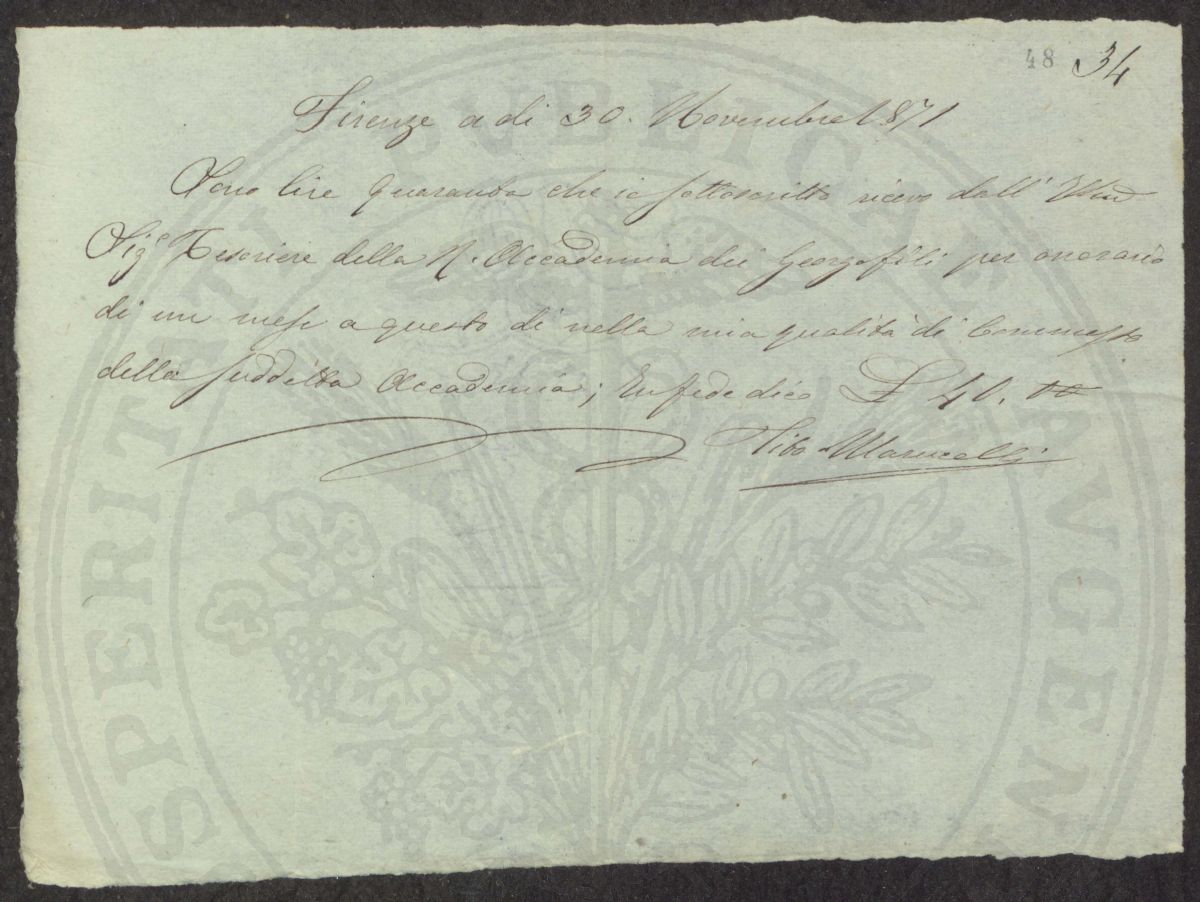 48 34
Firenze a di 30. Novembre 1871
Sono lire Quaranta che io sottoscritto ricevo dall'
Sigr Tesoriere della R. Accademia dei Georgofili per onorario
di un mese a questo dì nella mia qualità di Commesso
della suddetta Accademia; In fede dico £ 40. 00
Marucelli
PUBLICAE
SPERITATI
AVGEN